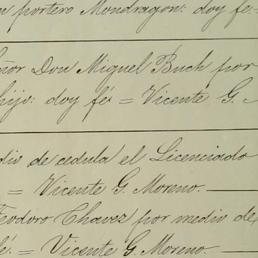 n portero Mondragon: doy fe=
eñor Don Miguel Buch por
hijo: doy fé = Vicente G.
dio de cedula el Licenciado
= Vicente G. Moreno.
Teodoro Chavez por medio de
fé. = Vicente G. Moreno.